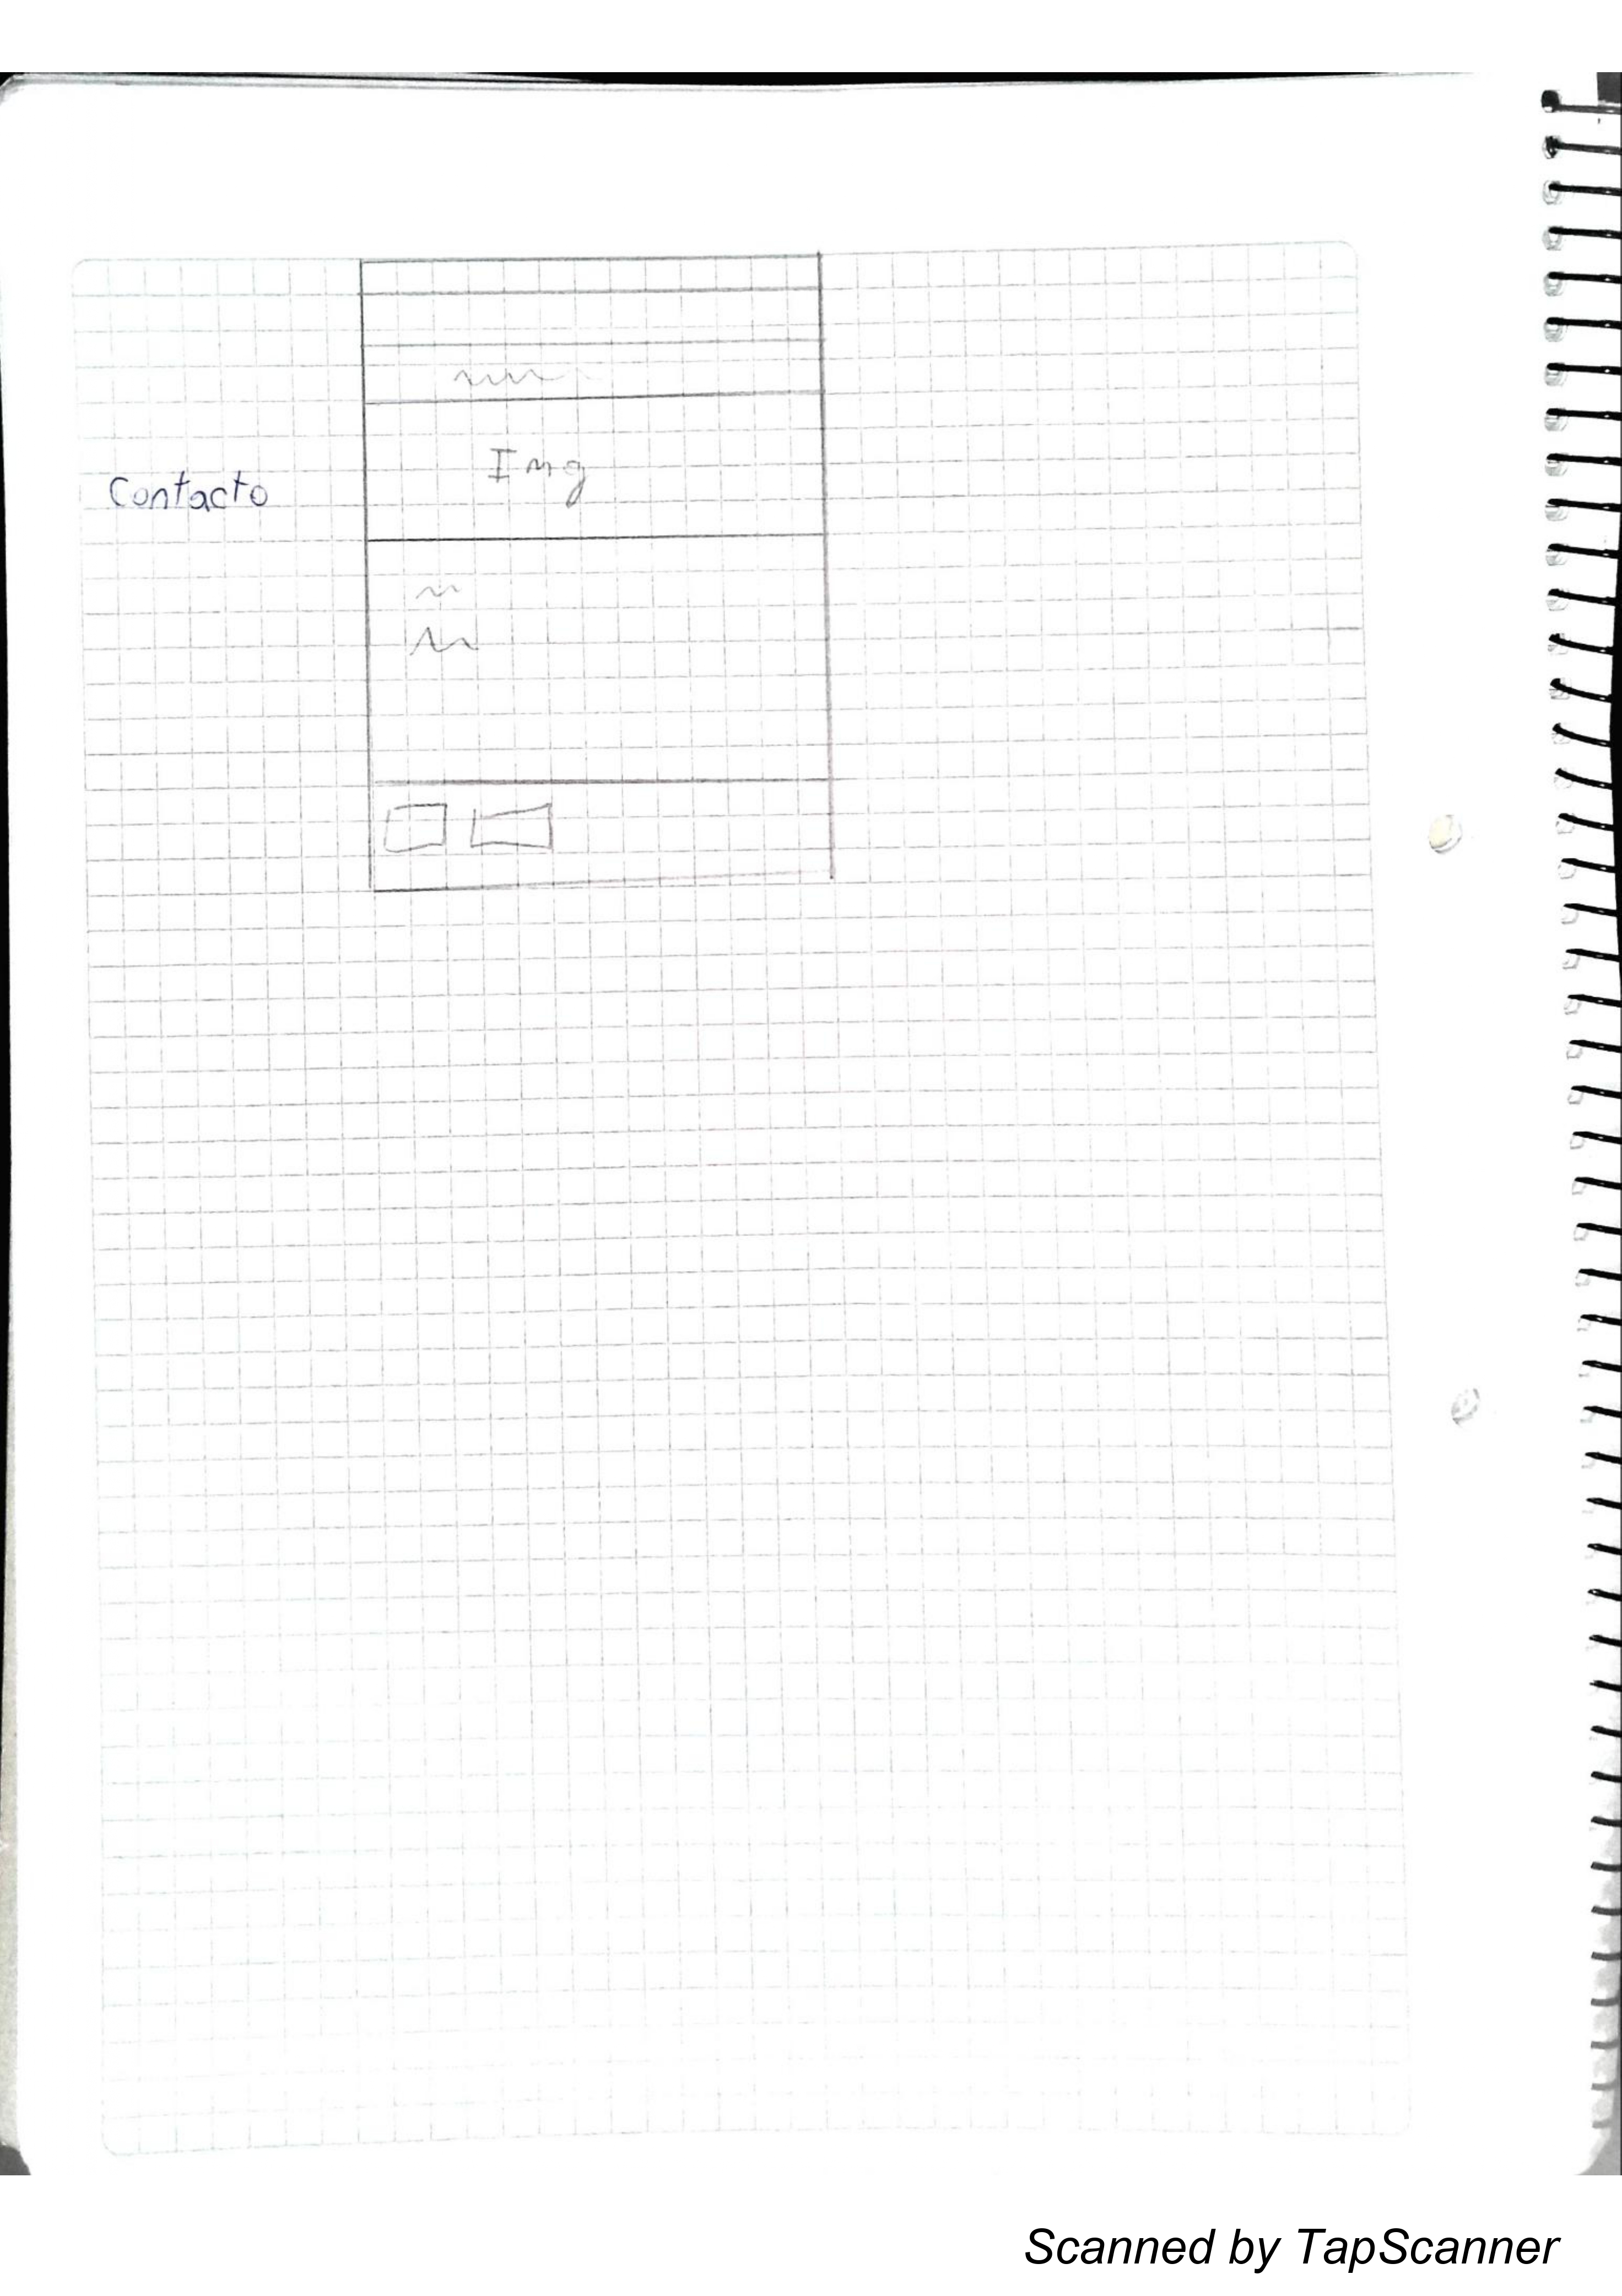 Img
Contacto
Scanned by TapScanner